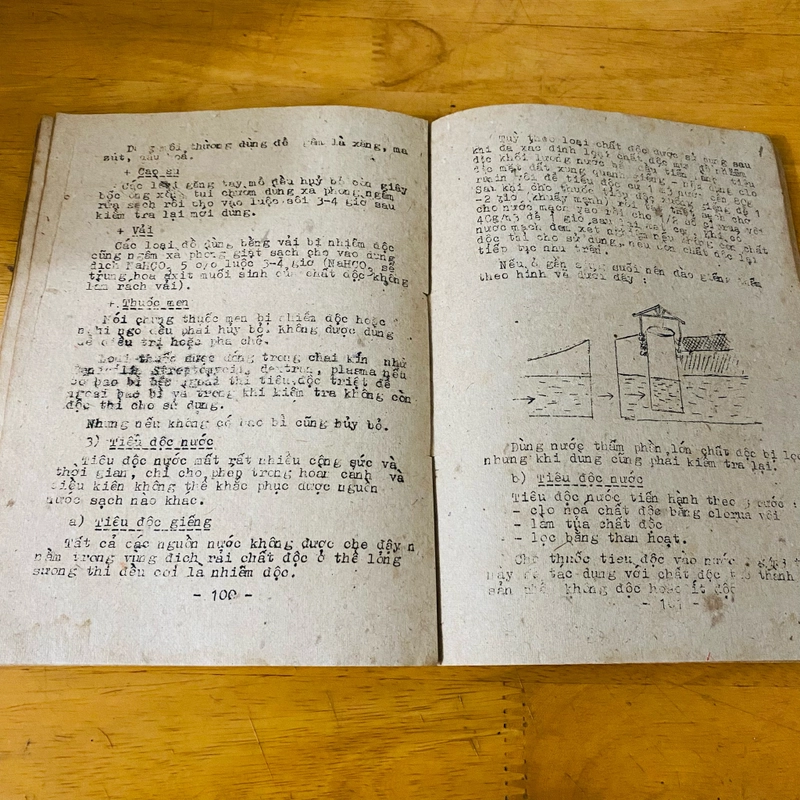 môi thường dùng để là xăng, ma
sút, dầu hoả.
+ Cao su
Các loại găng tay mổ đều huỷ bỏ còn giầy
bốc ống xăng túi chườm dùng xà phòng ngâm
rửa sạch rồi cho vào luộc sôi 3-4 giờ sau
kiểm tra lại mới dùng.
+ Vải
Các loại đồ dùng bằng vải bị nhiễm độc
cũng ngâm xà phòng giặt sạch cho vào dung
dịch NaHCO3 5 o/o luộc 3-4 giờ (NaHCO3 sẽ
trung hoà axít muối sinh của chất độc không
làm rách vải).
+ Thuốc men
Nói chung thuốc men bị nhiễm độc hoặc
nghi ngờ đều phải hủy bỏ. Không được dùng
để điều trị hoặc pha chế.
Loại thuốc được đóng trong chai kín như
Streptomycin, dextran, plasma nếu
có bao bì bên ngoài thì tiêu độc triệt để
ngoài bao bì và trong khi kiểm tra không còn
độc thì cho sử dụng.
Nhưng nếu không có bao bì cũng hủy bỏ.
3) Tiêu độc nước
Tiêu độc nước mất rất nhiều công sức và
thời gian, chỉ cho phép trong hoàn cảnh và
điều kiện không thể khắc phục được nguồn
nước sạch nào khác.
a) Tiêu độc giếng
Tất cả các nguồn nước không được che đậy
nằm trong vùng địch rải chất độc ở thể lỏng
sương thì đều coi là nhiễm độc.
- 100 -
Tuỳ theo loại chất độc được sử dụng sau
khi đã xác định loại chất độc mức độ nhiễm
độc khối lượng nước
độc mặt đất xung quanh giếng
để tiêu độc cứ 1 m3 nước 80g
sau khi cho thuốc tiêu độc xuống giếng để 1
-2 giờ (khuấy mạnh) rồi
cho nước mạch vào rồi cho
40g/m3 để 1 giờ sau
nước mạch đem xét nghiệm nếu không còn chất
độc thì cho sử dụng, nếu còn chất độc lại
tiếp tục như trên.
Nếu ở gần suối nên đào giếng
theo hình vẽ dưới đây :
Dùng nước thấm phần lớn chất độc bị lọc
nhưng khi dùng cũng phải kiểm tra lại.
b) Tiêu độc nước
Tiêu độc nước tiến hành theo 3 bước :
- clo hoá chất độc bằng clorua vôi
- làm tủa chất độc
- lọc bằng than hoạt.
Cho thuốc tiêu độc vào nước
tác dụng với chất độc thành
sản không độc hoặc ít độc
- 101 -